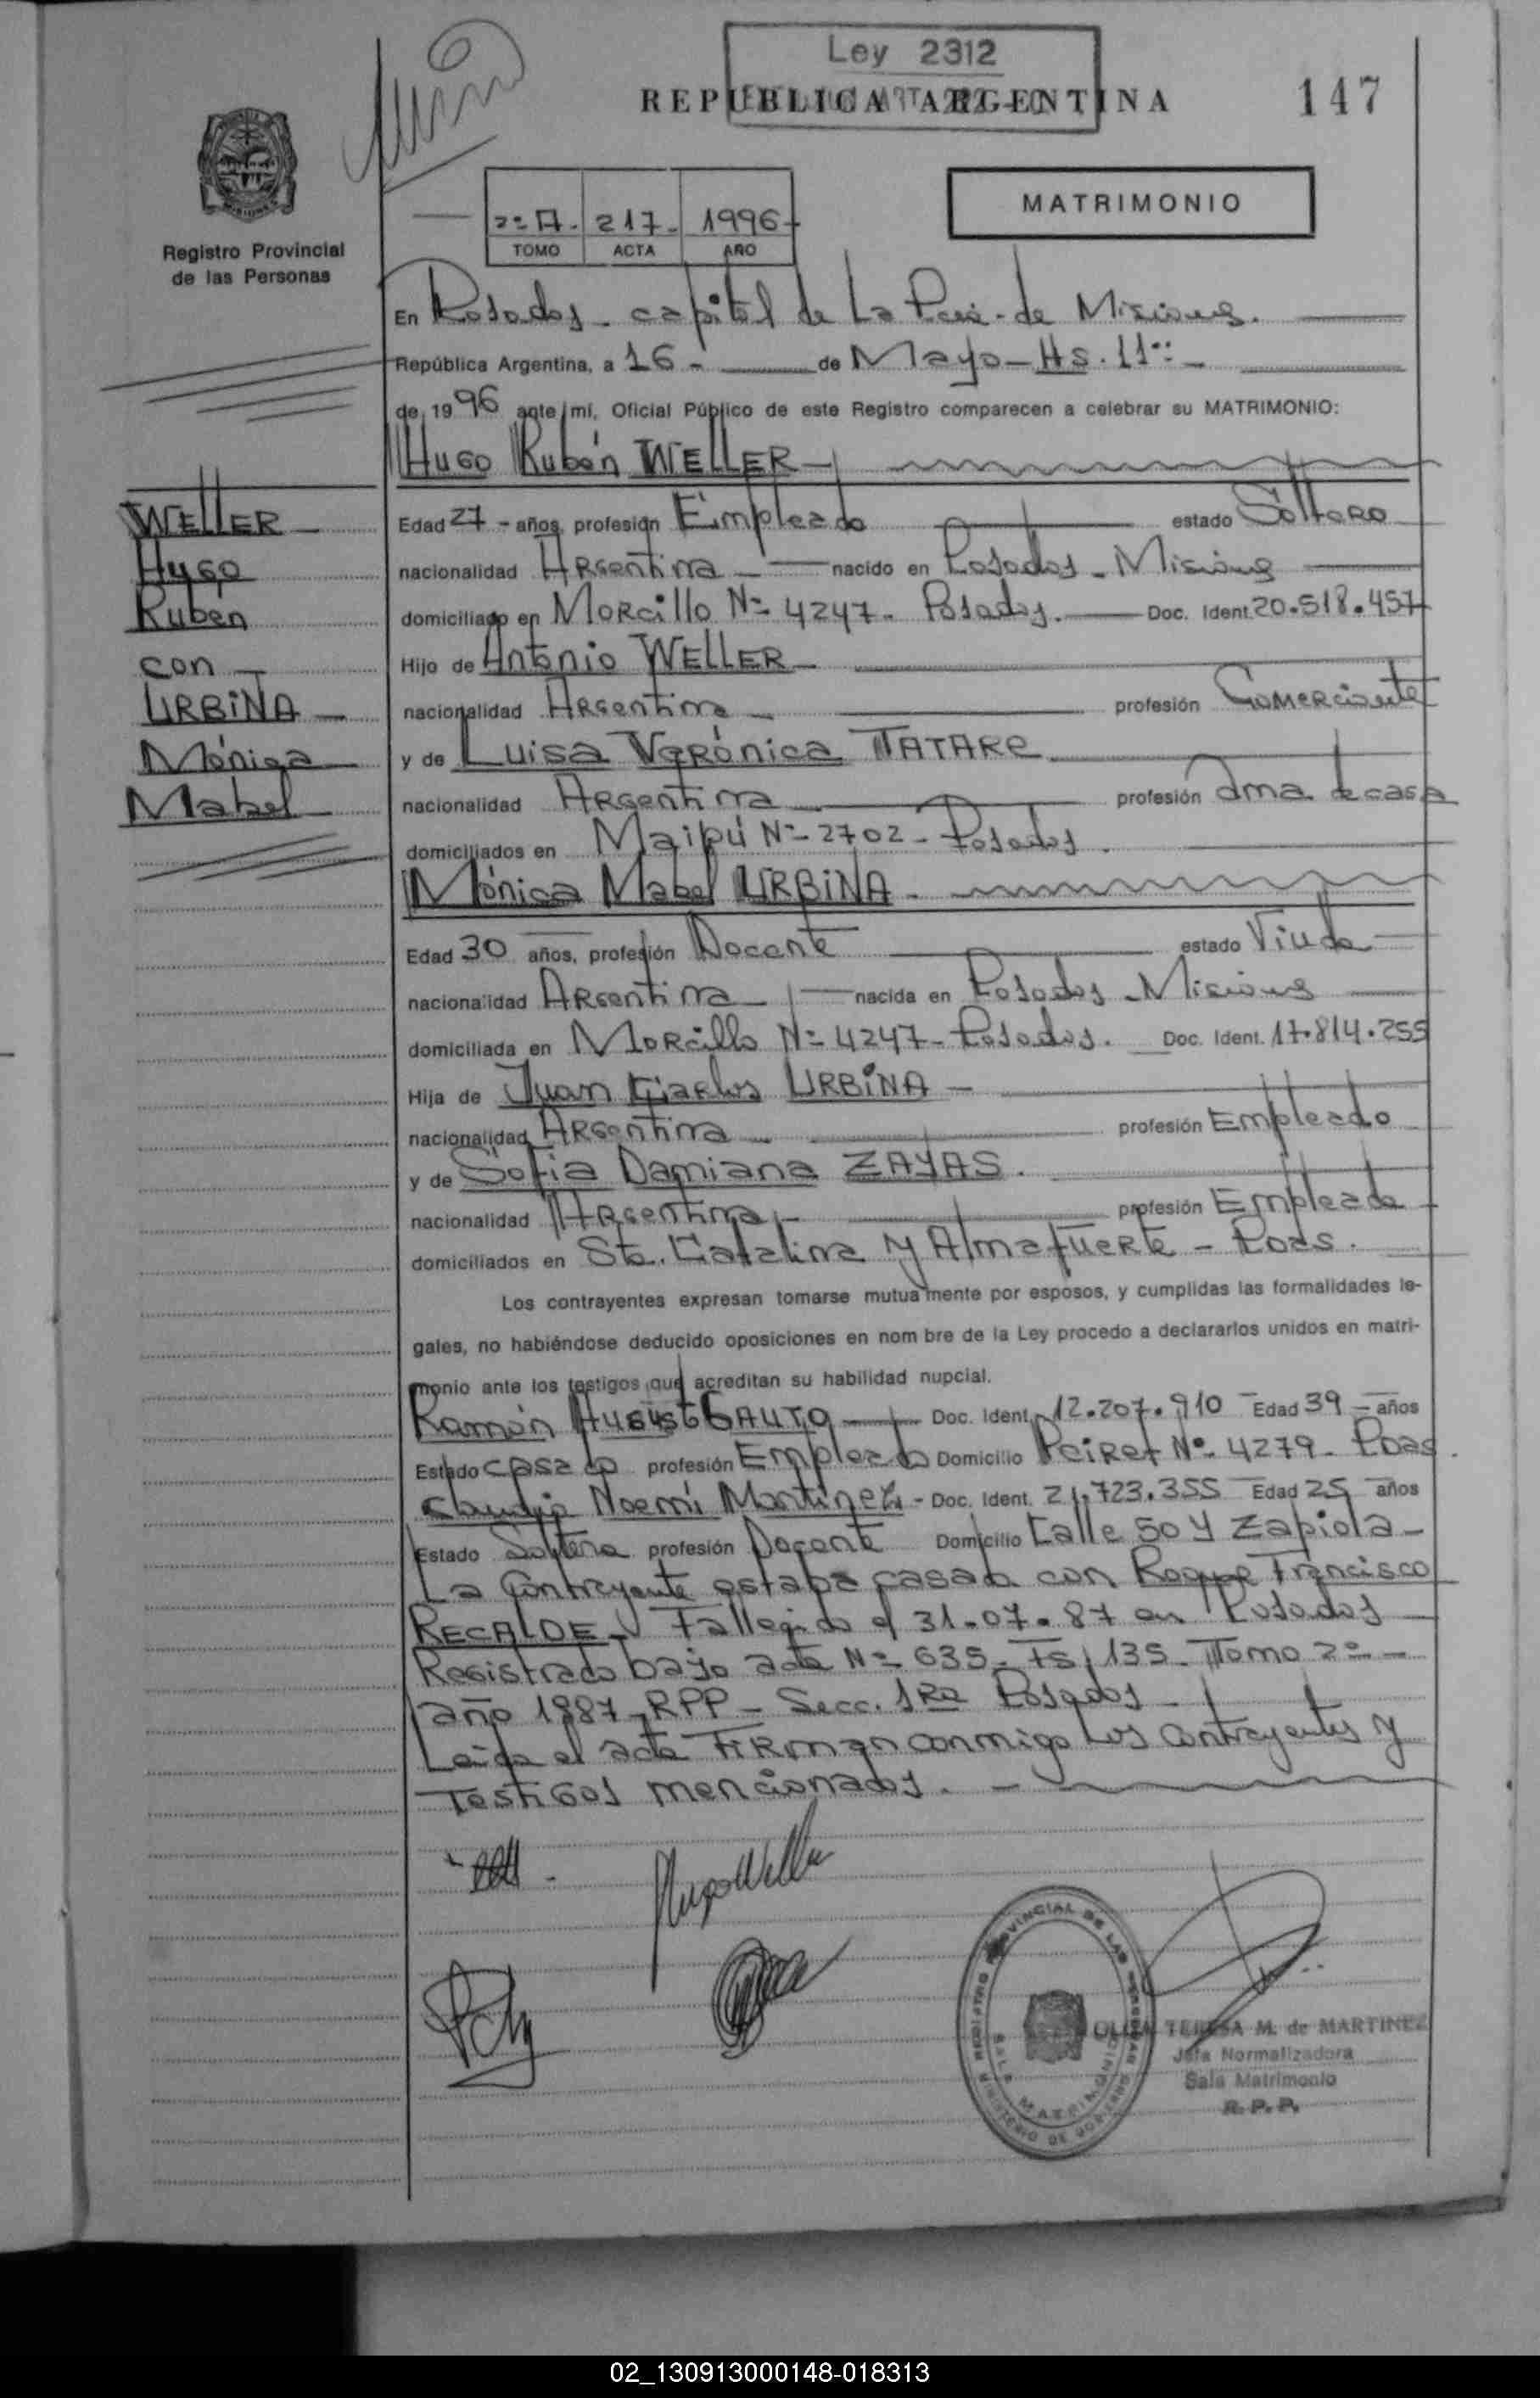 Ley 2312
REPUBLICA ARGENTINA
147
Registro Provincial
de las Personas
2º A - 217 - 1996 -
TOMO ACTA AÑO
MATRIMONIO
En Posadas - capital de La Pcia - de Misiones.
República Argentina, a 16 - de Mayo - Hs. 11
de 1996 ante mí, Oficial Público de este Registro comparecen a celebrar su MATRIMONIO:
Hugo Rubén WELLER -
WELLER
Hugo
Ruben
con
URBINA
Mónica
Mabel
Edad 27 - años, profesión Empleado estado Soltero
nacionalidad Argentina - nacido en Posadas - Misiones
domiciliado en Morcillo Nº 4247 - Posadas. Doc. Ident. 20.518.457
Hijo de Antonio WELLER -
nacionalidad Argentina - profesión Comerciante
y de Luisa Verónica TATARE
nacionalidad Argentina profesión Ama de casa
domiciliados en Maipú Nº - 2702 - Posadas.
Mónica Mabel URBINA -
Edad 30 años, profesión Docente estado Viuda
nacionalidad Argentina - nacida en Posadas - Misiones
domiciliada en Morcillo Nº 4247 - Posadas. Doc. Ident. 17.814.255
Hija de Juan Carlos URBINA -
nacionalidad Argentina - profesión Empleado
y de Sofia Damiana ZAYAS.
nacionalidad Argentina - profesión Empleada
domiciliados en Sta. Catalina y Almafuerte - Pdas.
Los contrayentes expresan tomarse mutuamente por esposos, y cumplidas las formalidades le-
gales, no habiéndose deducido oposiciones en nom bre de la Ley procedo a declararlos unidos en matri-
monio ante los testigos que acreditan su habilidad nupcial.
Ramón Augusto GAUTO - Doc. Ident. 12.207.910 Edad 39 - años
Estado casado profesión Empleado Domicilio Peiret Nº - 4279 - Pdas.
Claudia Noemí Martinez - Doc. Ident. 21.723.355 Edad 25 años
Estado Soltera profesión Docente Domicilio Calle 50 y Zapiola -
La Contrayente estaba casada con Roque Francisco
RECALDE - Fallecido el 31-07-87 en Posadas
Registrado bajo acta Nº 635 - Fs. 135 - Tomo 2º -
año 1987 - RPP - Secc. 1ra Posadas -
Leida el acta Firman conmigo Los contrayentes y
Testigos mencionados. -
Hugo Weller
REGISTRO PROVINCIAL DE LAS PERSONAS
SALA MATRIMONIO
MINISTERIO DE GOBIERNO
OLGA TERESA M. de MARTINEZ
Jefa Normalizadora
Sala Matrimonio
R. P. P.
02_130913000148-018313